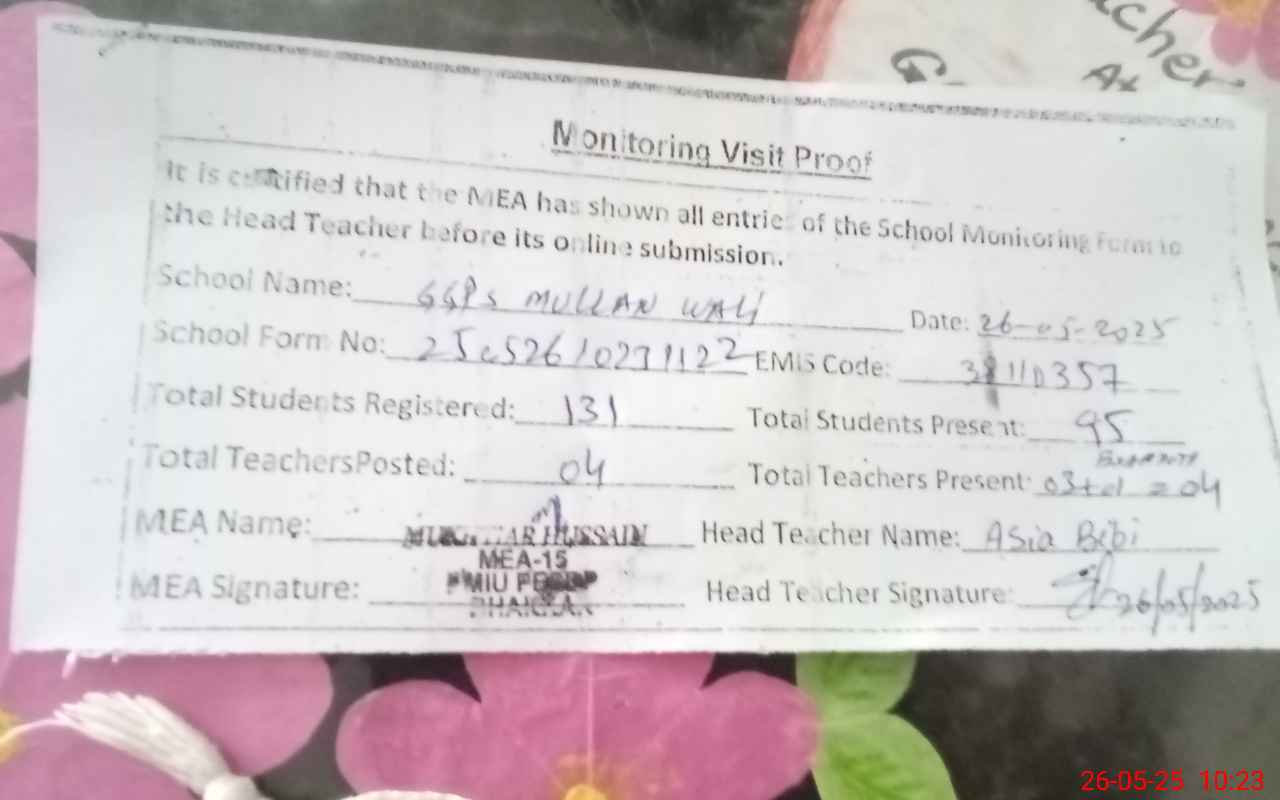 acher
Monitoring Visit Proof
It is certified that the MEA has shown all entries of the School Monitoring Form to
the Head Teacher before its online submission.
School Name: GGPS MULLAN WALI Date: 26-05-2025
School Form No: EMIS Code:
Total Students Registered: 131 Total Students Present: 95
Total TeachersPosted: 04 Total Teachers Present: 03+01 = 04
MEA Name: MUKHTAR HUSSAIN Head Teacher Name: Asia Bibi
MEA-15
PMIU
MEA Signature: Head Teacher Signature: 26/05/2025
26-05-25 10:23